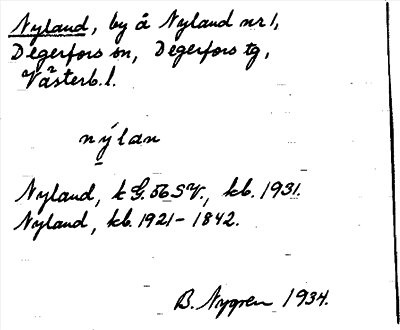 Nyland, by å Nyland nr 1,
Degerfors sn, Degerfors tg,
Västerb. l.
nýlan
Nyland, k G. 56 SV., kb. 1931.
Nyland, kb. 1921-1842.
B. Nygren 1934.